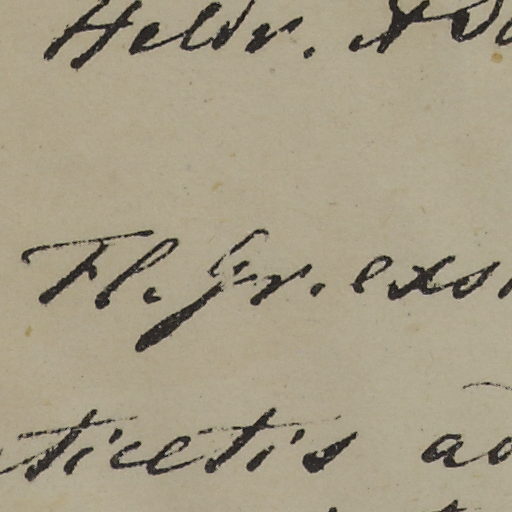 Heldr.
Fl. Gr. exs
ticetis